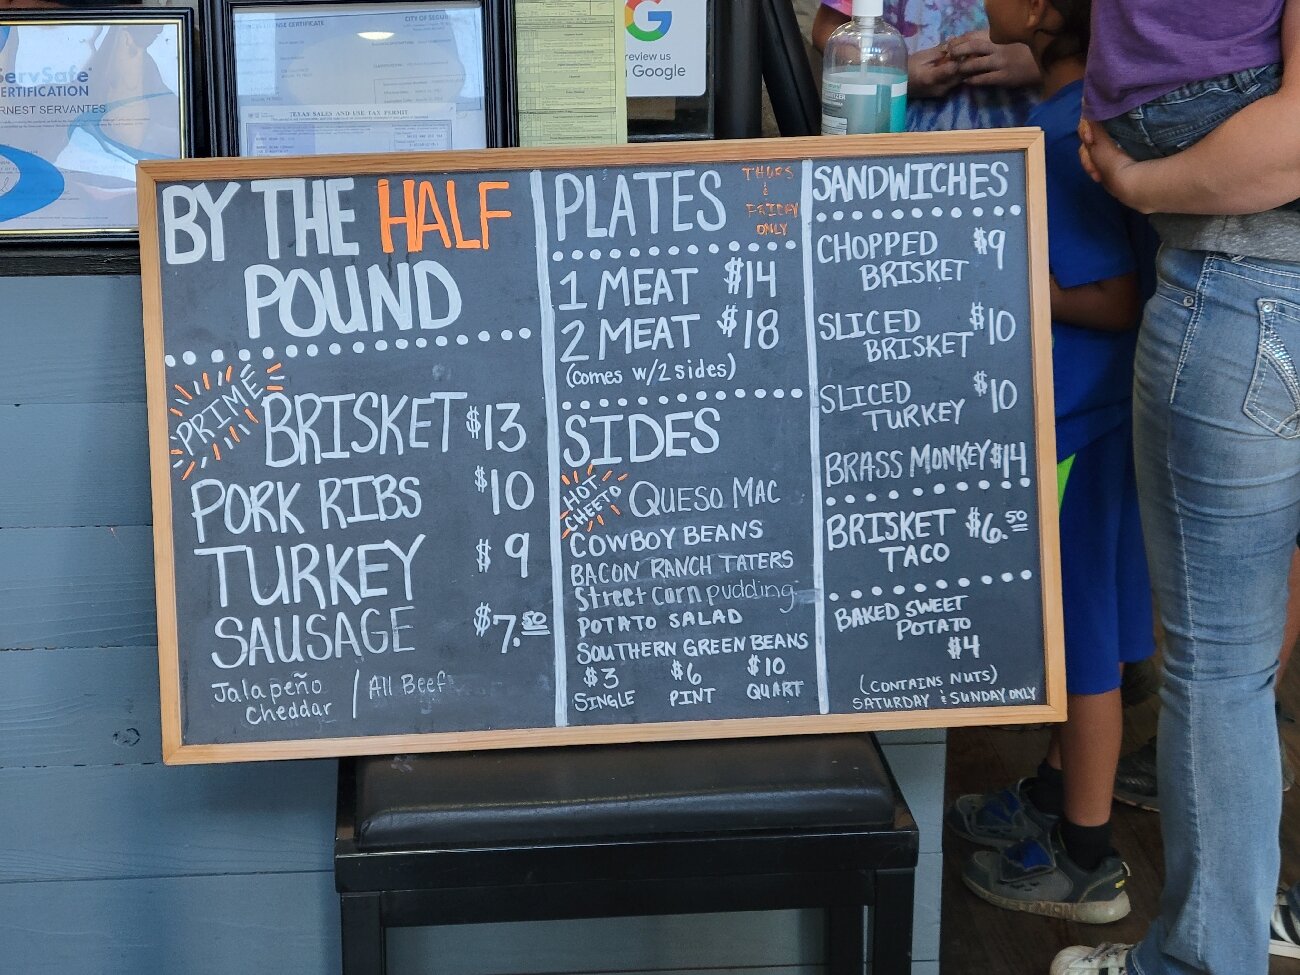 ServSafe
CERTIFICATION
RNEST SERVANTES
NSE CERTIFICATE
CITY OF SEGUI
TEXAS SALES AND USE TAX PERMIT
G
review us
n Google
BY THE HALF
POUND
PRIME
BRISKET $13
PORK RIBS $10
TURKEY $9
SAUSAGE $7.50
Jalapeño / All Beef
Cheddar
PLATES
THURS
&
FRIDAY
ONLY
1 MEAT $14
2 MEAT $18
(comes w/2 sides)
SIDES
HOT
CHEETO
QUESO MAC
COWBOY BEANS
BACON RANCH TATERS
Street corn pudding
POTATO SALAD
SOUTHERN GREEN BEANS
$3 $6 $10
SINGLE PINT QUART
SANDWICHES
CHOPPED $9
BRISKET
SLICED $10
BRISKET
SLICED $10
TURKEY
BRASS MONKEY $14
BRISKET $6.50
TACO
BAKED SWEET
POTATO
$4
(CONTAINS NUTS)
SATURDAY & SUNDAY ONLY